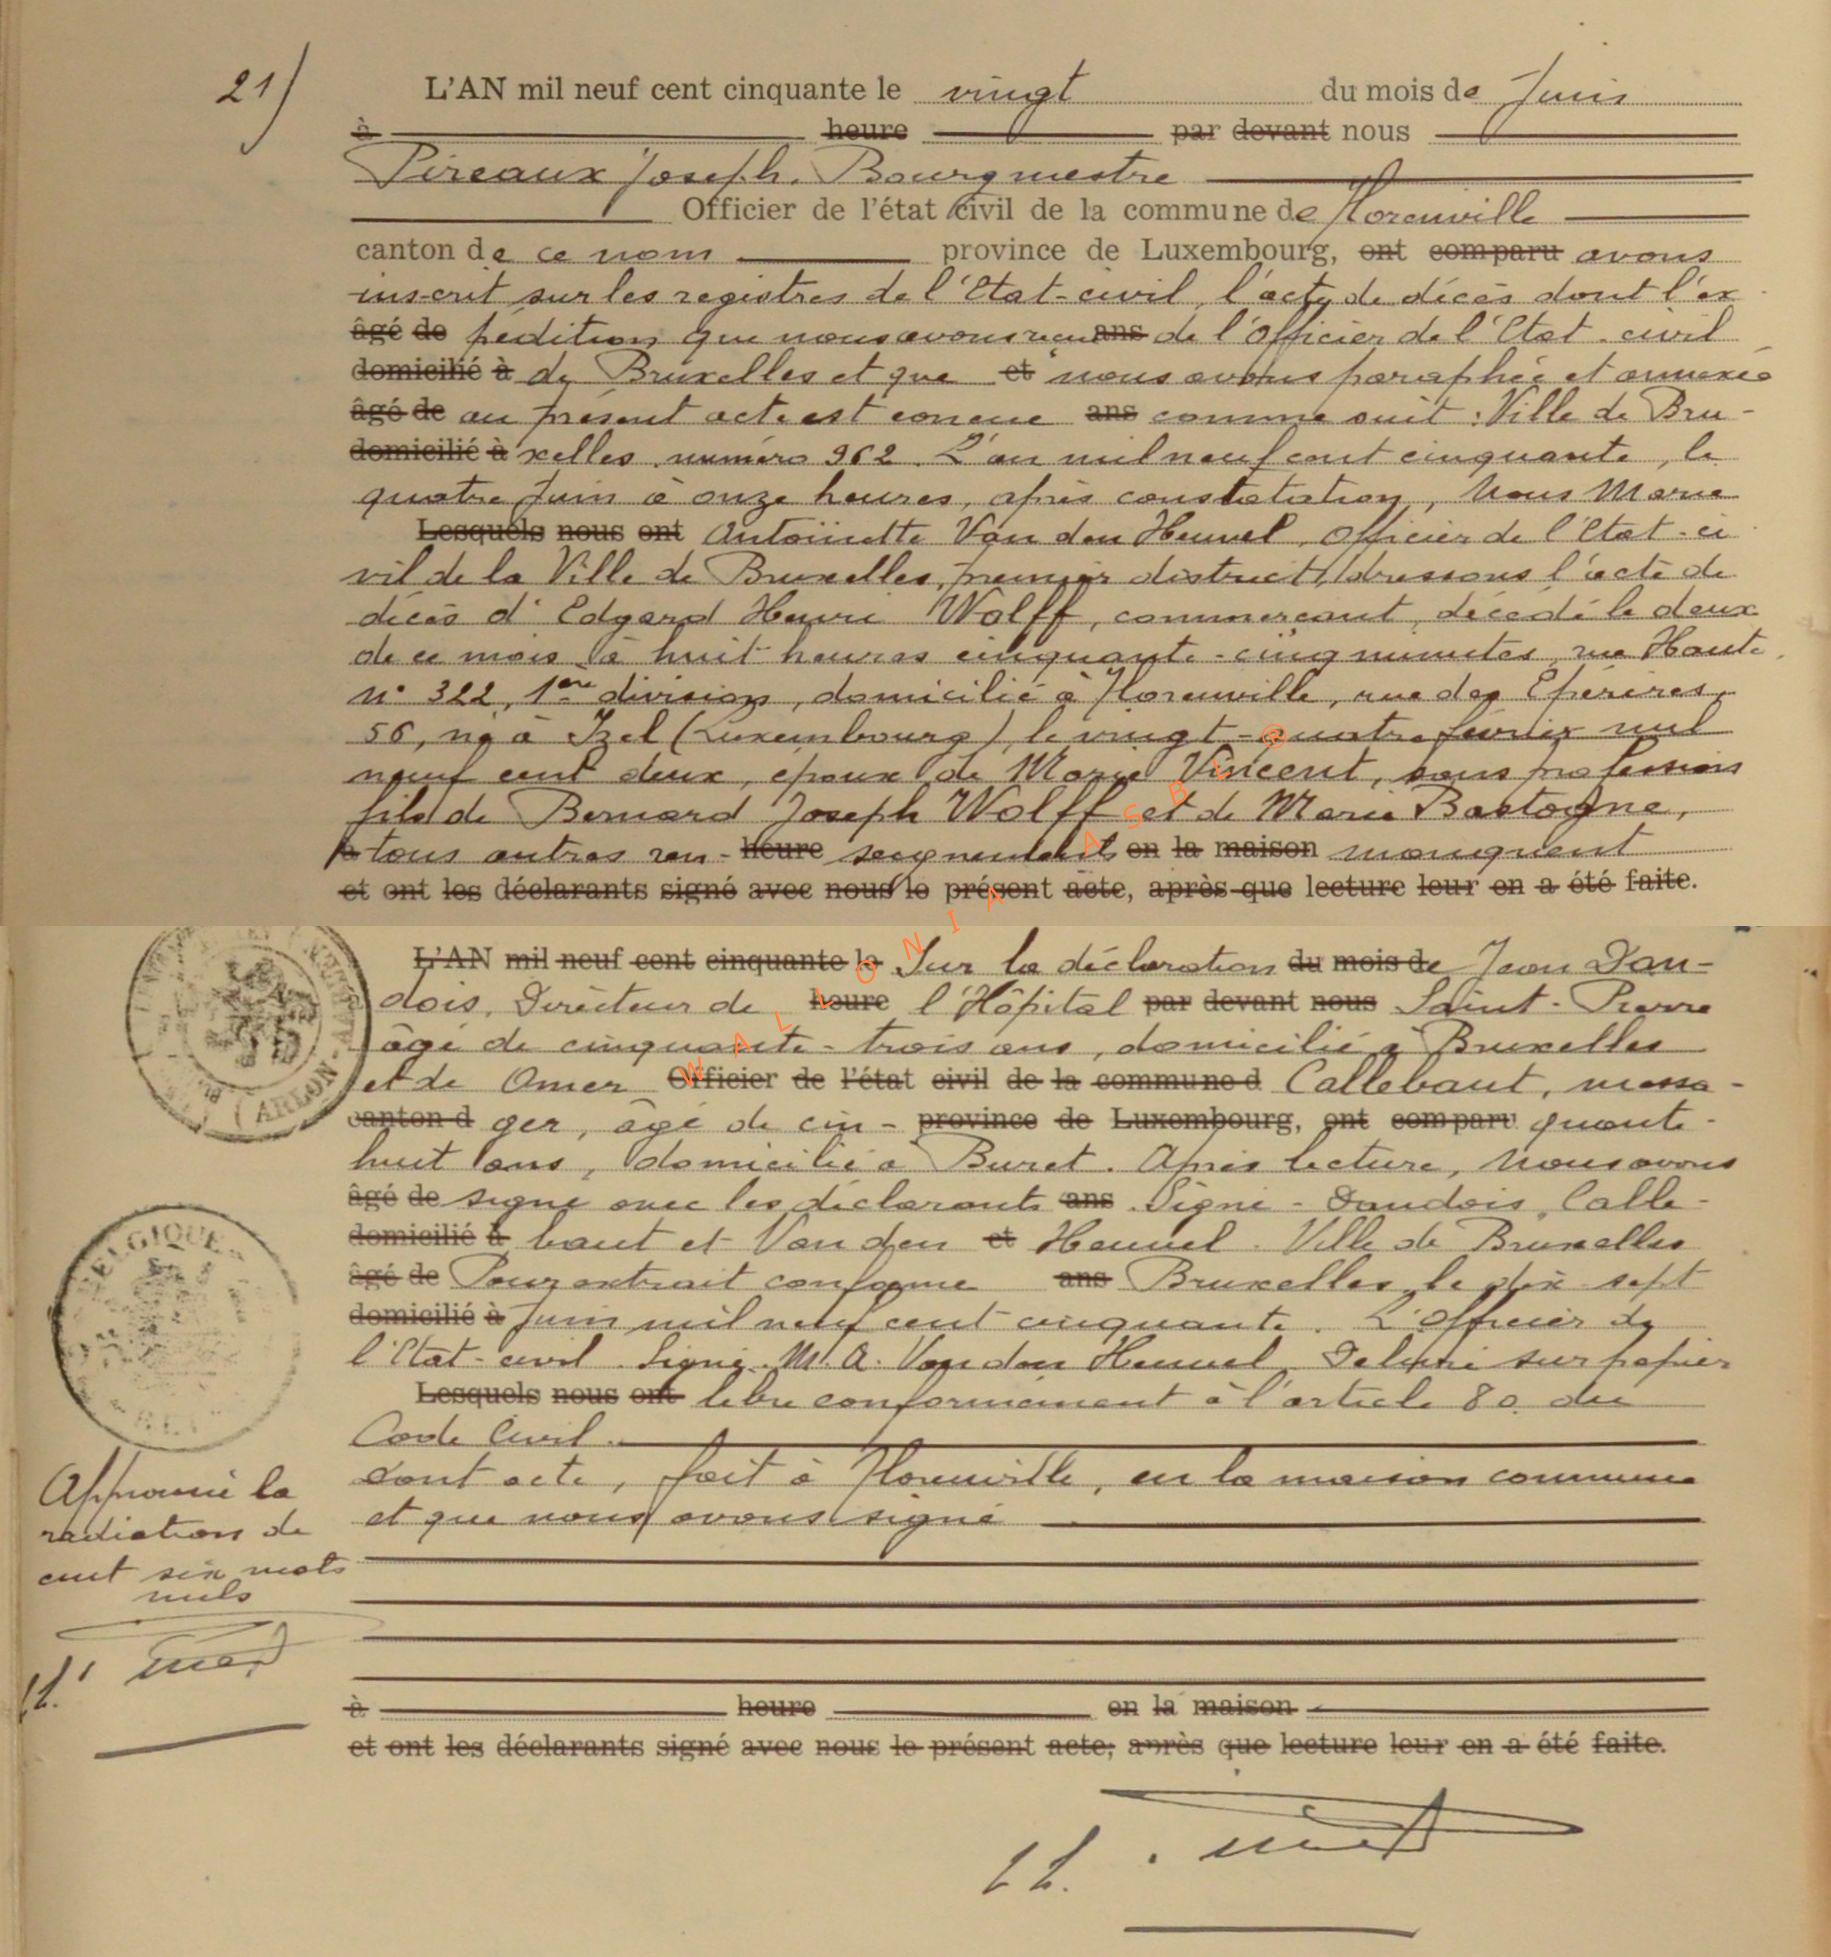 21)
L'AN mil neuf cent cinquante le vingt du mois de Juin
à heure par devant nous
Pireaux Joseph. Bourgmestre
Officier de l'état civil de la commune de Florenville
canton de ce nom province de Luxembourg, ont comparu avons
inscrit sur les registres de l'Etat-civil, l'acte de décès dont l'ex
âgé de pédition que nous avons reçue ans de l'Officier de l'Etat-civil
domicilié à de Bruxelles et que et nous avons paraphée et annexée
âgé de au présent acte est conçue ans comme suit : Ville de Bru-
domicilié à xelles. numéro 962. L'an mil neuf cent cinquante, le
quatre Juin à onze heures, après constatation, Nous Marie
Lesquels nous ont Antoinette Van den Heuvel, Officier de l'Etat-ci
vil de la Ville de Bruxelles, premier district, dressons l'acte de
décès d'Edgard Henri Wolff, commerçant, décédé le deux
de ce mois à huit heures cinquante-cinq minutes, rue Haute,
n° 322, 1ère division, domicilié à Florenville, rue des Epérires,
56, né à Izel (Luxembourg) le vingt-quatre février mil
neuf cent deux, époux de Marie Vincent, sans profession
fils de Bernard Joseph Wolff et de Marie Bastogne,
à tous autres ren- heure seignements en la maison manquent
et ont les déclarants signé avec nous le présent acte, après que lecture leur en a été faite.
WALLONIA ASBL ®
L'AN mil neuf cent cinquante le Sur la déclaration du mois de Jean Dan-
dois, Directeur de heure l'Hôpital par devant nous Saint-Pierre
âgé de cinquante-trois ans, domicilié à Bruxelles
et de Omer Officier de l'état civil de la commune d Callebaut, messa-
canton d ger, âgé de cin- province de Luxembourg, ont comparu quante-
huit ans, domicilié à Buzet. Après lecture, Nous avons
âgé de signé avec les déclarants ans. Signé - Dandois, Calle-
domicilié à baut et Van den et Heuvel. Ville de Bruxelles
âgé de Pour extrait conforme ans Bruxelles, le dix sept
domicilié à Juin mil neuf cent cinquante. L'Officier de
l'Etat-civil. Signé. M. A. Van den Heuvel. Délivré sur papier
Lesquels nous ont libre conformément à l'article 80 du
Code Civil.
Dont acte, fait à Florenville, en la maison commune
et que nous avons signé
BELGIQUE
(ARLON)
Approuvé la
radiation de
cent six mots
nuls
à heure en la maison
et ont les déclarants signé avec nous le présent acte, après que lecture leur en a été faite.